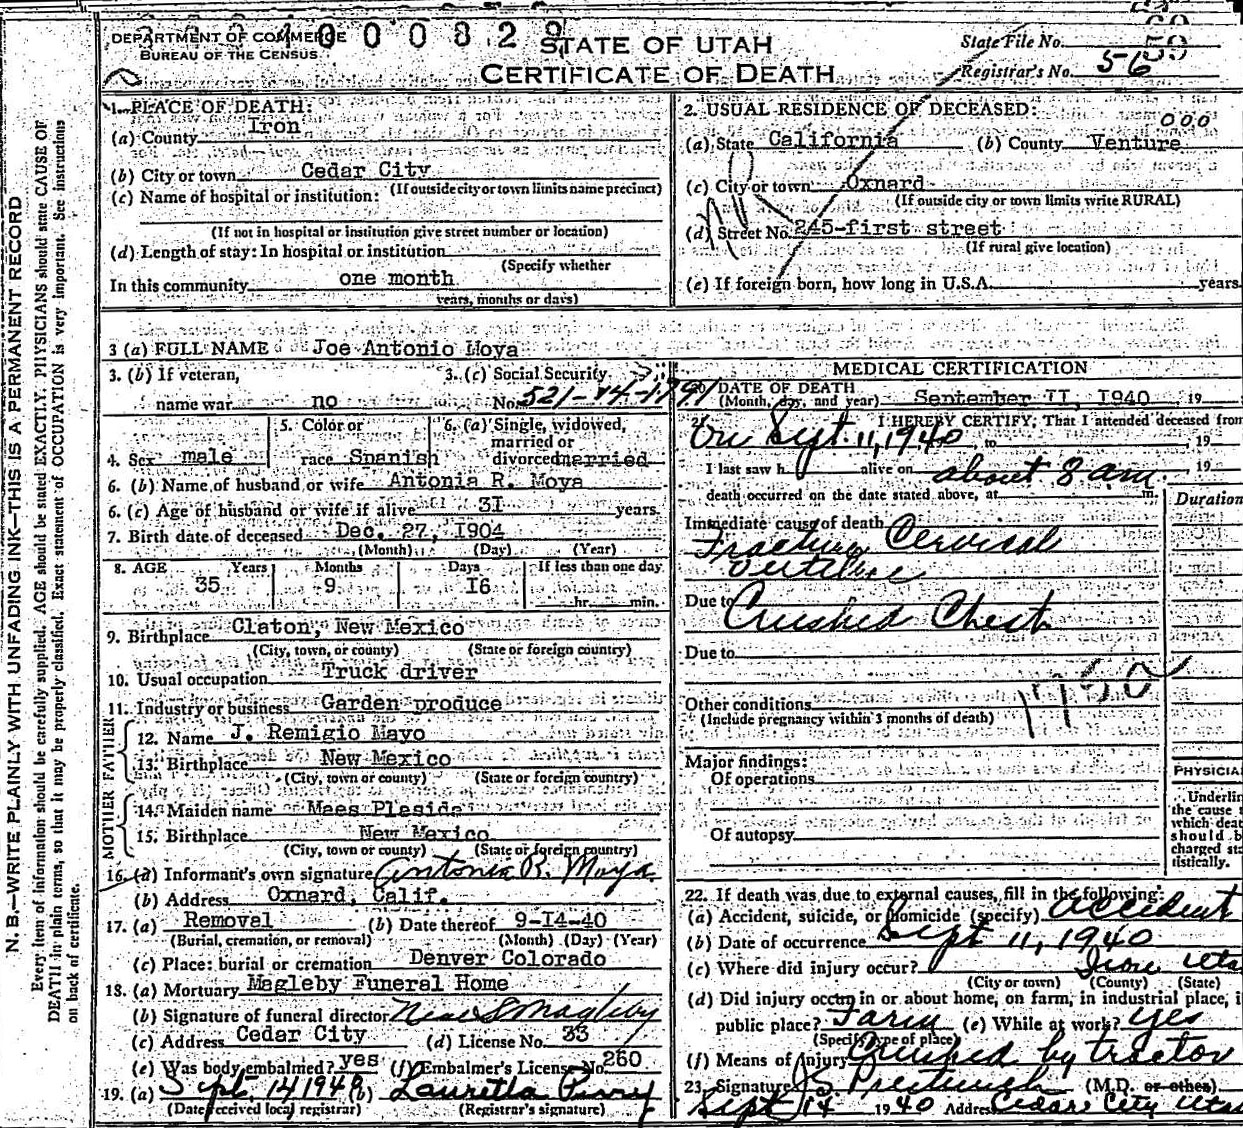 1000829
DEPARTMENT OF COMMERCE
BUREAU OF THE CENSUS
STATE OF UTAH
CERTIFICATE OF DEATH
State File No. 59
Registrar's No. 56
N. B.—WRITE PLAINLY WITH UNFADING INK—THIS IS A PERMANENT RECORD
Every item of information should be carefully supplied. AGE should be stated EXACTLY. PHYSICIANS should state CAUSE OF
DEATH in plain terms, so that it may be properly classified. Exact statement of OCCUPATION is very important. See instructions
on back of certificate.
1. PLACE OF DEATH:
(a) County Iron
(b) City or town Cedar City
(If outside city or town limits name precinct)
(c) Name of hospital or institution:
(If not in hospital or institution give street number or location)
(d) Length of stay: In hospital or institution
(Specify whether
In this community one month
years, months or days)
2. USUAL RESIDENCE OF DECEASED:
000
(a) State California (b) County Venture
(c) City or town Oxnard
(If outside city or town limits write RURAL)
NR
(d) Street No. 245-first street
(If rural give location)
(e) If foreign born, how long in U.S.A. years
3 (a) FULL NAME Joe Antonio Moya
3. (b) If veteran,
name war no
3. (c) Social Security
No. 521-14-1791
4. Sex male
5. Color or
race Spanish
6. (a) Single, widowed,
married or
divorced married
6. (b) Name of husband or wife Antonia R. Moya
6. (c) Age of husband or wife if alive 31 years.
7. Birth date of deceased Dec. 27, 1904
(Month) (Day) (Year)
8. AGE Years Months Days If less than one day
35 9 16 hr. min.
9. Birthplace Claton, New Mexico
(City, town, or county) (State or foreign country)
10. Usual occupation Truck driver
11. Industry or business Garden produce
FATHER
12. Name J. Remigio Mayo
13. Birthplace New Mexico
(City, town or county) (State or foreign country)
MOTHER
14. Maiden name Maes Plasida
15. Birthplace New Mexico
(City, town or county) (State or foreign country)
16. (a) Informant's own signature Antonia R. Moya.
(b) Address Oxnard, Calif.
17. (a) Removal (b) Date thereof 9-14-40
(Burial, cremation, or removal) (Month) (Day) (Year)
(c) Place: burial or cremation Denver Colorado
18. (a) Mortuary Magleby Funeral Home
(b) Signature of funeral director Magleby
(c) Address Cedar City (d) License No. 33
(e) Was body embalmed? yes (f) Embalmer's License No. 260
19. (a) Sept. 14 1940 (b) Lauretta Perry
(Date received local registrar) (Registrar's signature)
MEDICAL CERTIFICATION
20. DATE OF DEATH
(Month, day, and year) September 11, 1940 19
21. I HEREBY CERTIFY; That I attended deceased from
On Sept. 11, 1940 to , 19
I last saw h alive on about 8 am. , 19
death occurred on the date stated above, at m.
Duration
Immediate cause of death
Fracture Cervical
vertebrae
Due to Crushed Chest
Due to
1750
Other conditions
(Include pregnancy within 3 months of death)
Major findings:
Of operations
Of autopsy
PHYSICIA
Underlin
the cause
which deat
should b
charged sta
tistically.
22. If death was due to external causes, fill in the following:
(a) Accident, suicide, or homicide (specify) Accident
(b) Date of occurrence Sept 11, 1940
(c) Where did injury occur? Iron Utah
(City or town) (County) (State)
(d) Did injury occur in or about home, on farm, in industrial place, i
public place? Farm (e) While at work? yes
(Specify type of place)
(f) Means of Injury Crushed by tractor
23. Signature (M.D. or other)
Sept 14 1940 Address Cedar City Utah